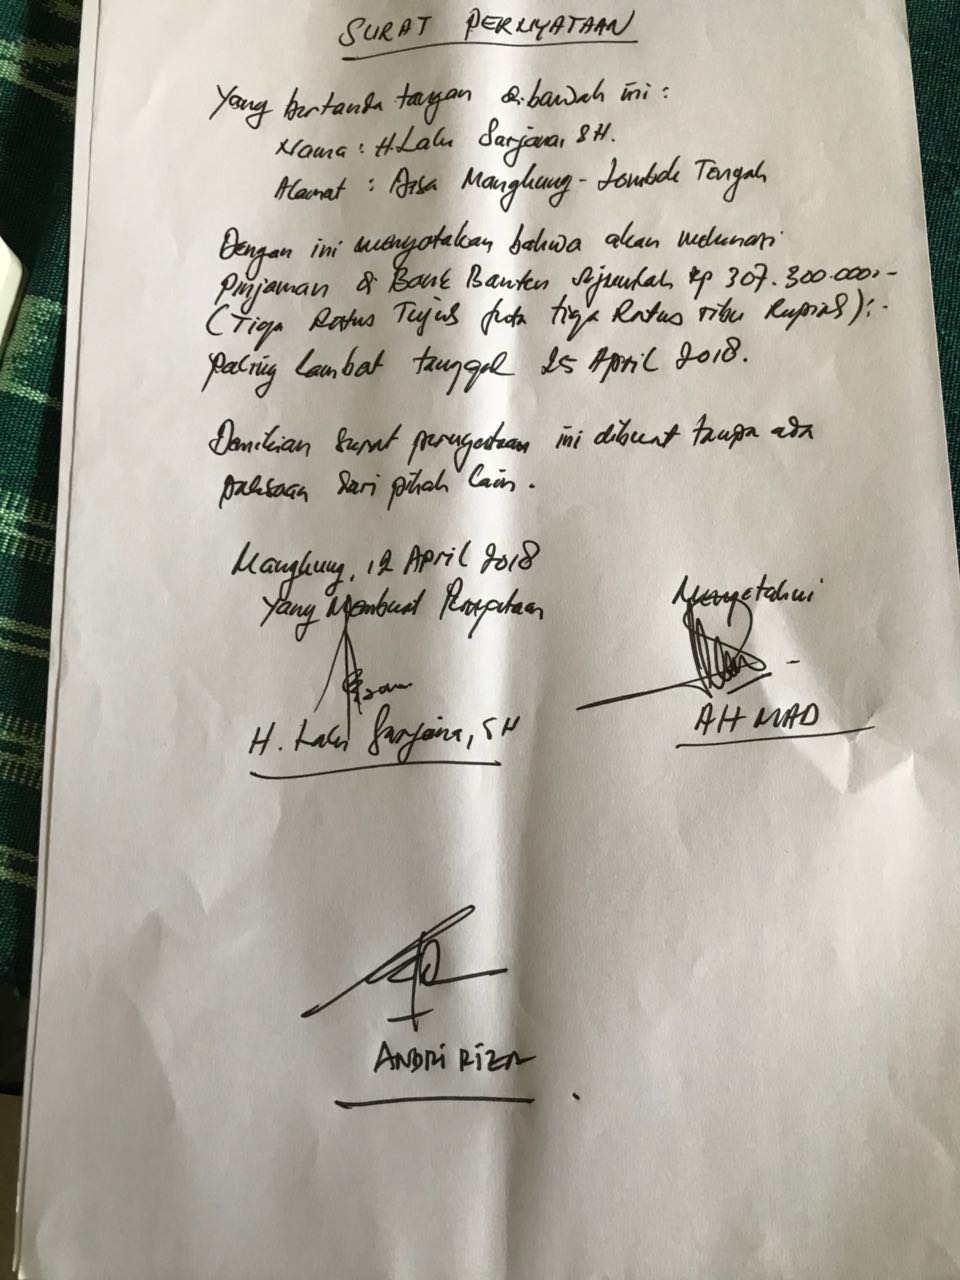 SURAT PERNYATAAN
Yang bertanda tangan dibawah ini :
Nama : H. Lalu Sarjana, SH.
Alamat : Desa Mangkung - Lombok Tengah
Dengan ini menyatakan bahwa akan melunasi
Pinjaman di Bank Banten sejumlah Rp 307.300.000,-
(Tiga Ratus Tujuh juta tiga Ratus ribu Rupiah) :-
paling lambat tanggal 25 April 2018.
Demikian surat pernyataan ini dibuat tanpa ada
paksaan dari pihak lain.
Mangkung, 12 April 2018
Yang Membuat Pernyataan
Mengetahui
H. Lalu Sarjana, SH
AHMAD
ANDRI RIZA